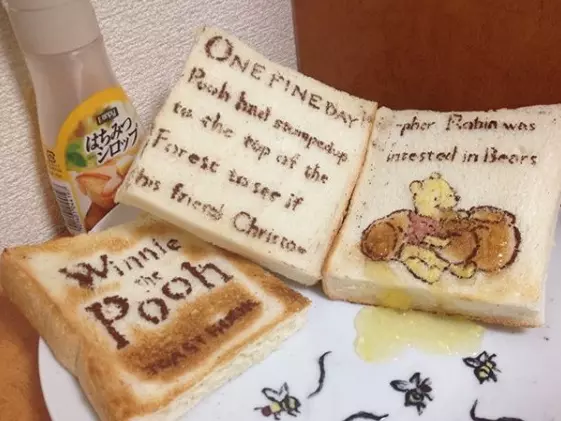 Lupe
はちみつ
シロップ
Winnie
the
Pooh
TOAST BOOK
ONE FINE DAY
Pooh had stumped up
to the top of the
Forest to see if
his friend Christo-
-pher Robin was
intested in Bears